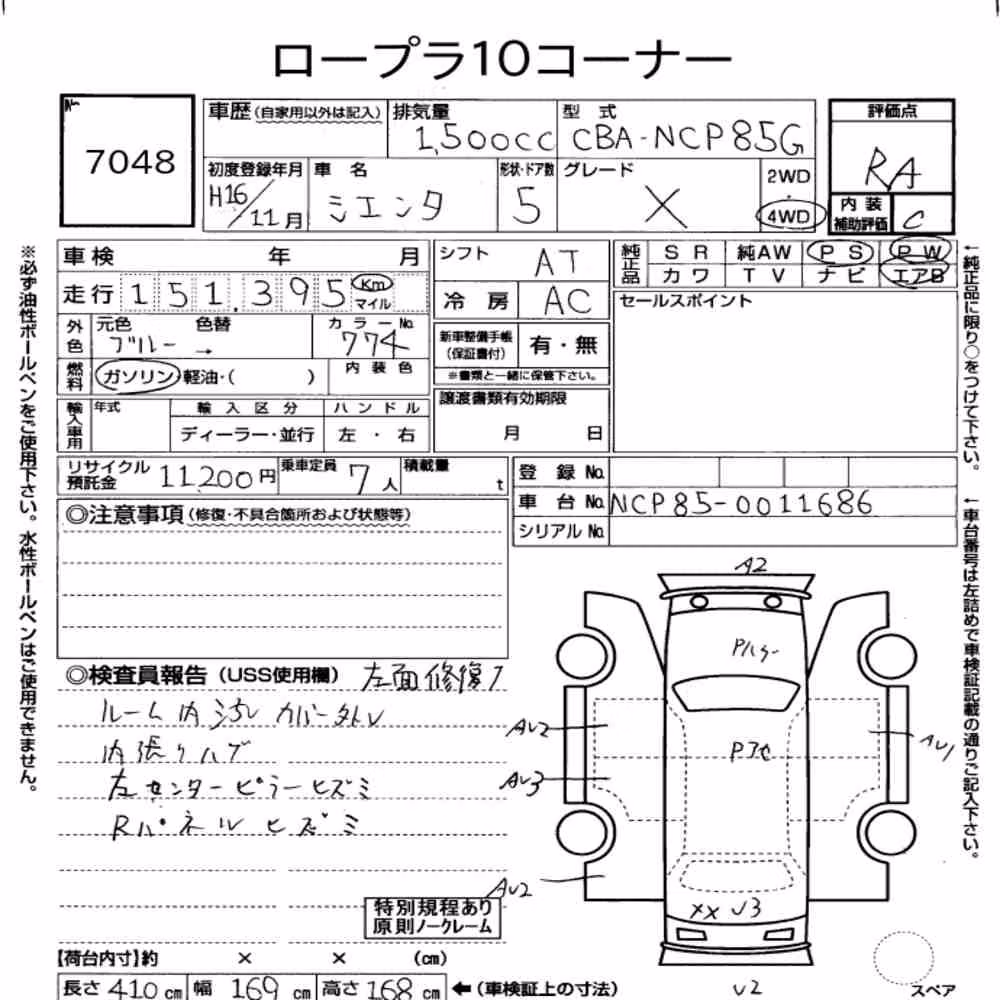 ロープラ10コーナー
No.
7048
車歴(自家用以外は記入)
排気量
1,500cc
型 式
CBA-NCP85G
評価点
RA
初度登録年月
H16/11月
車 名
シエンタ
形状・ドア数
5
グレード
X
2WD
・
4WD
内 装
補助評価
C
車検 年 月
シフト
AT
純正品
S R 純AW P S P W
カワ T V ナビ エアB
走行 151,395 Km マイル
冷 房
AC
セールスポイント
外色
元色 色替
ブルー →
カラーNo.
774
新車整備手帳
(保証書付)
有・無
※書類と一緒に保管下さい。
燃料
ガソリン・軽油・( )
内 装 色
譲渡書類有効期限
月 日
輸入車用
年式
輸 入 区 分
ハ ン ド ル
ディーラー・並行
左 ・ 右
リサイクル
預託金
11,200円
乗車定員
7人
積載量
t
登 録 No.
車 台 No. NCP85-0011686
シリアル No.
◎注意事項(修復・不具合箇所および状態等)
◎検査員報告(USS使用欄) 左面修復ア
ルーム内汚レ カバー外レ
内張リハゲ
左センターピラーヒズミ
Rパネル ヒズミ
特別規程あり
原則ノークレーム
【荷台内寸】約 × × (cm)
長さ 410 cm 幅 169 cm 高さ 168 cm
←(車検証上の寸法)
A2
AU2
AU1
AU3
AU2
XX U3
U2
スペア
※必ず油性ボールペンをご使用下さい。水性ボールペンはご使用できません。
←純正品に限り○をつけて下さい。
←車台番号は左詰めで車検証記載の通りご記入下さい。